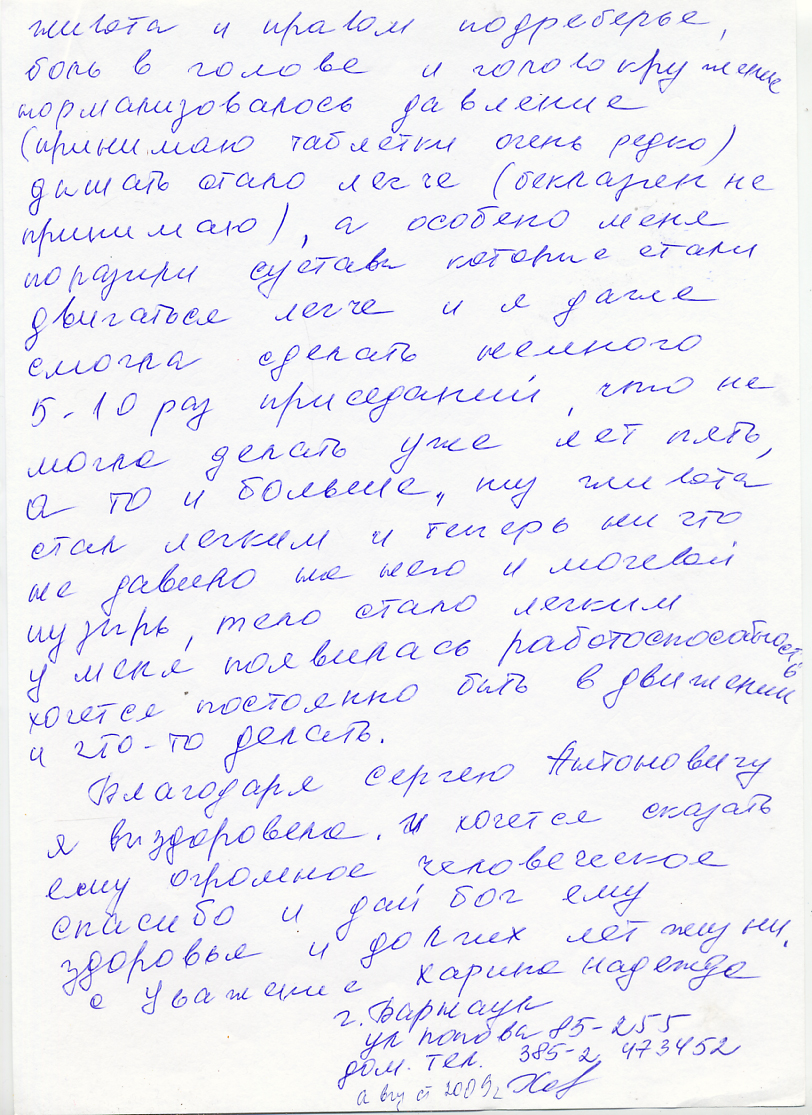 живота и правом подреберье,
боль в голове и головокружение
нормализовалось давление
(принимаю таблетки очень редко)
дышать стало легче (беклазон не
принимаю), а особено меня
поразили суставы которые стали
двигаться легче и я даже
смогла сделать немного
5-10 раз приседаний, что не
могла делать уже лет пять,
а то и больше, низ живота
стал легким и теперь ни что
не давило на него и мочевой
пузырь, тело стало легким
у меня появилась работоспособность
хочется постоянно быть в движении
и что-то делать.
Благодаря Сергею Антоновичу
я выздоровела. и хочется сказать
ему огромное человеческое
спасибо и дай бог ему
здоровья и долгих лет жизни.
с уважение Харина Надежда
г. Барнаул
ул Попова 85-255
дом. тел. 385-2 473452
август 2009г